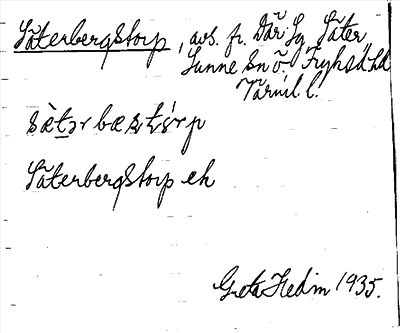 Säterbergstorp, avs. fr. Där Lg Säter
Sunne sn ö. Fryksd. hd
Värml l.
sä̀tər bæʂtɔ́rp
Säterbergstorp eh
Greta Hedin 1935.